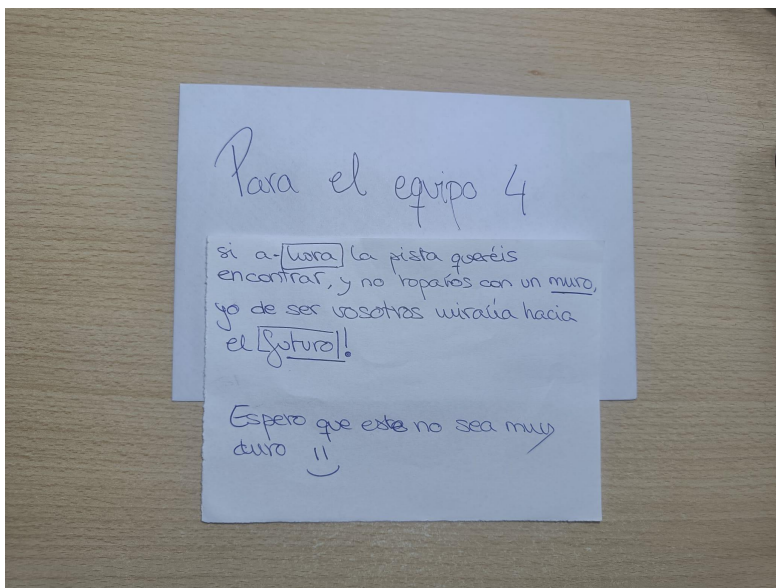 Para el equipo 4
si a-hora la pista queréis
encontrar, y no toparos con un muro,
yo de ser vosotros miraría hacia
el futuro!
Espero que este no sea muy
duro